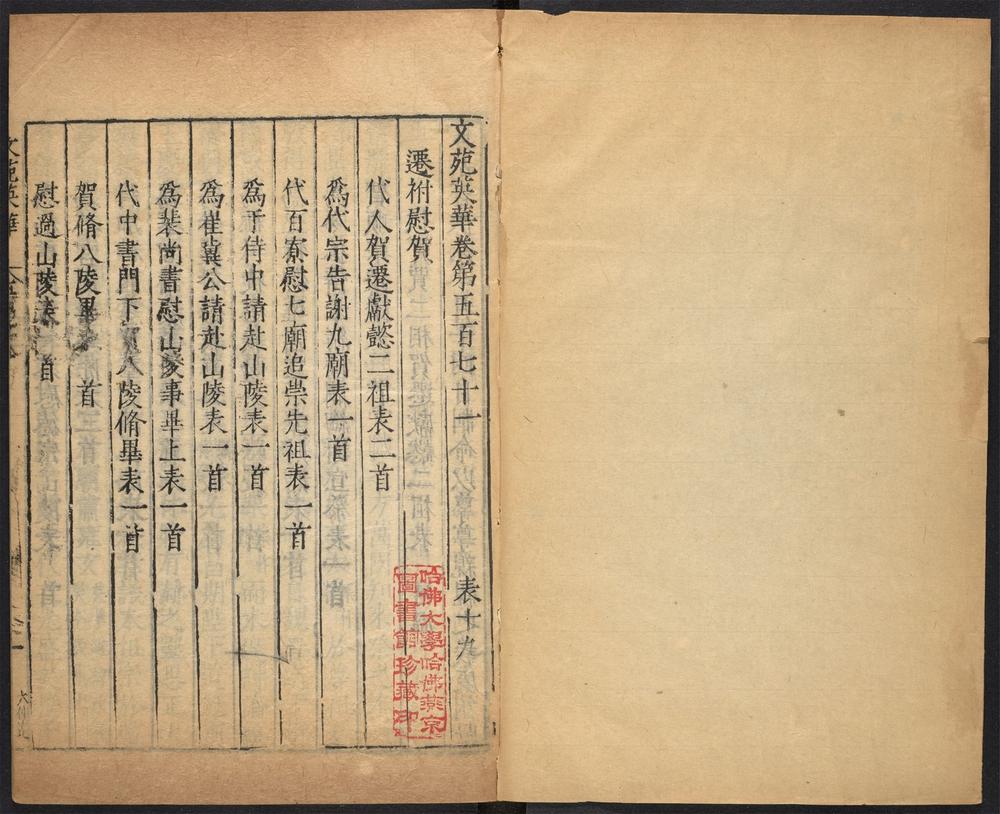 文苑英華卷第五百七十一 表十九
遷祔慰賀
代人賀遷獻懿二祖表二首
爲代宗告謝九廟表一首
代百寮慰七廟追崇先祖表一首
爲于侍中請赴山陵表一首
爲崔冀公請赴山陵表一首
爲裴尚書慰山陵事畢上表一首
代中書門下賀八陵脩畢表一首
賀脩八陵畢表一首
慰過山陵表一首
文苑英華
哈佛大學哈佛燕京
圖書館珍藏印